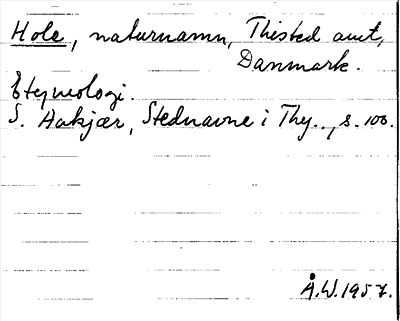 Hole, naturnamn, Thisted amt,
Danmark.
Etymologi.
S. Aakjær, Stednavne i Thy., s. 100.
Å.W. 1957.